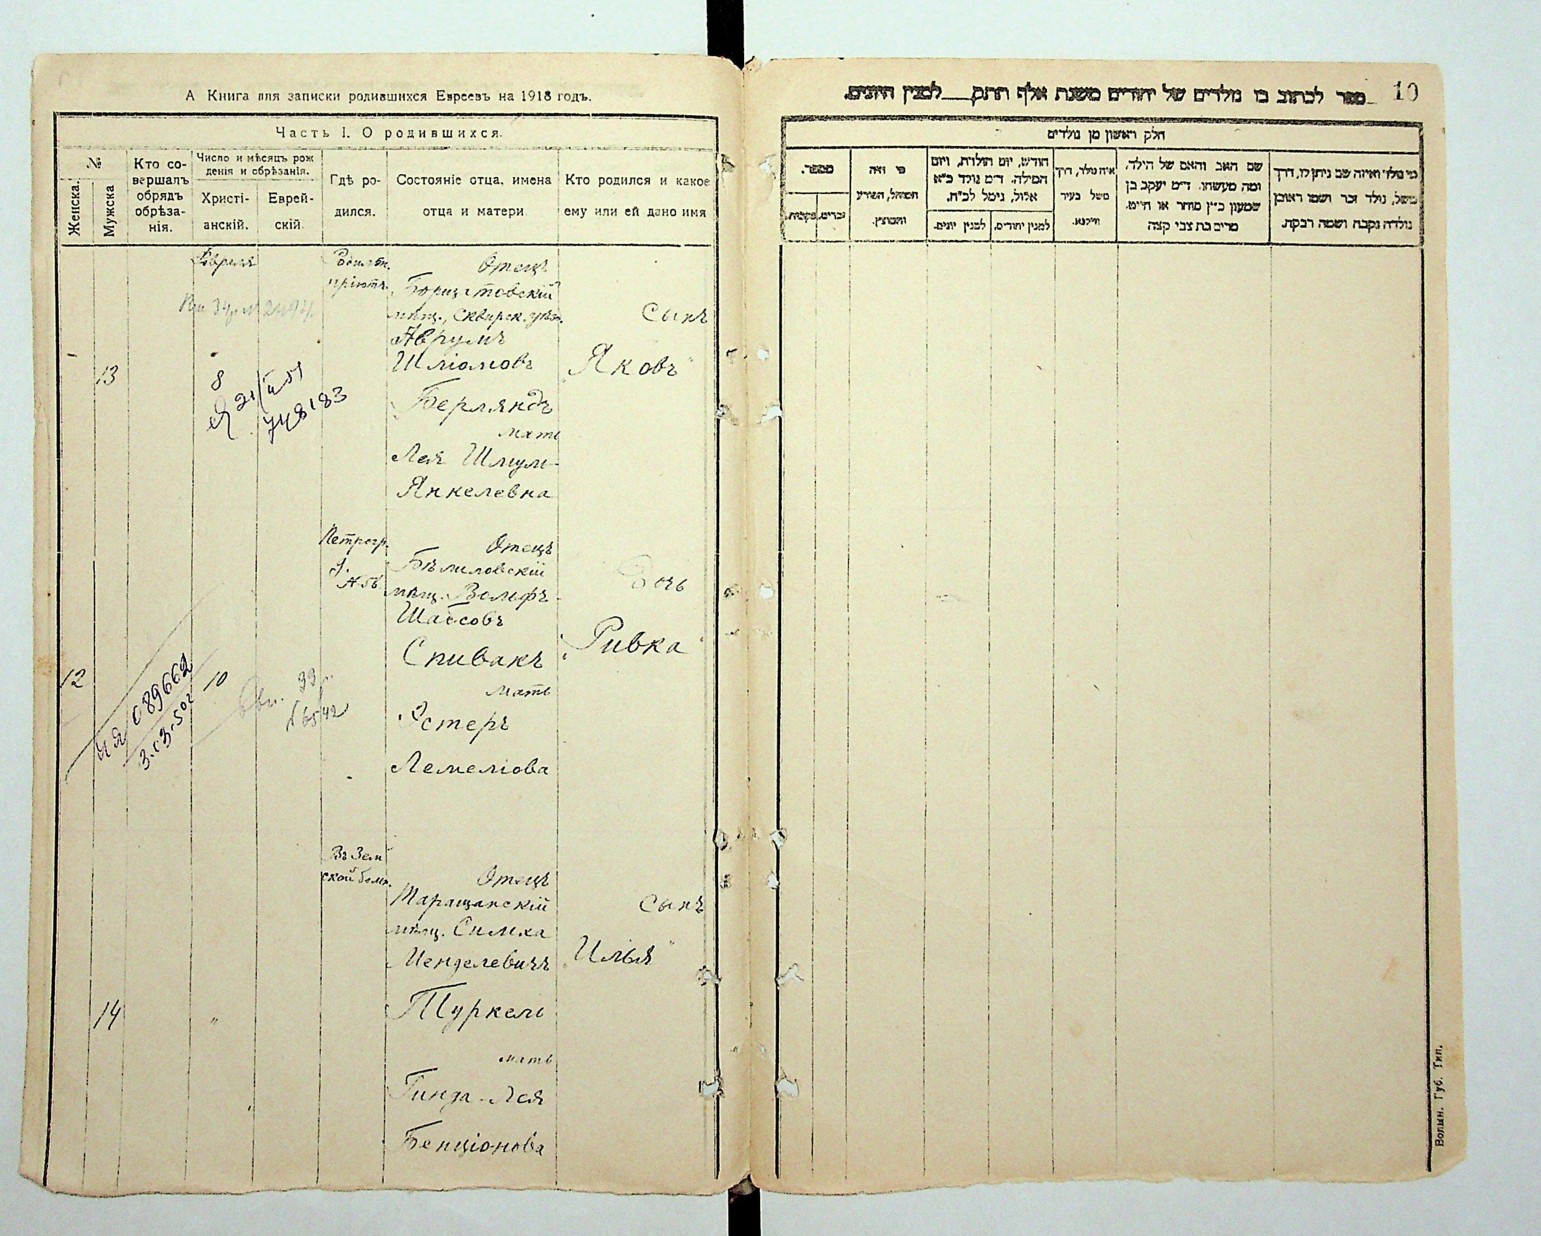 А Книга для записки родившихся Евреевъ на 1918 годъ.
Часть I. О родившихся.
№
Женска.
Мужска
Кто со-
вершалъ
обрядъ
обрѣза-
нія.
Число и мѣсяцъ рож
денія и обрѣзанія.
Христі-
анскій.
Еврей-
скій
Гдѣ ро-
дился.
Состояніе отца, имена
отца и матери
Кто родился и какое
ему или ей дано имя
13
8
748183
Отецъ
мѣщ., Сквирск. уѣз.
Аврумъ
Шліомовъ
Берляндъ
мать
Лея Шмул-
Янкелевна
Сынъ
„Яковъ"
12
10
089662
Петрогр.
Отецъ
Бѣлиловскій
мѣщ. Вольфъ-
Спивакъ
мать
Эстеръ
Лемеліова
Дочь
„Ривка"
14
"
Въ Зем
ской больн.
Отецъ
Таращанскій
мѣщ. Симха
Менделевичъ
Туркель
мать
Гинда-Лея
Бенціонова
Сынъ
„Илья"
10
ספר לכתוב בו נולדים של יהודים משנת אלף תתק__ למנין היונים.
חלק ראשון מן נולדים
מספר.
נקבות.
זכרים.
מי היה
המוהל, הפורע
והמוצץ.
חודש, יום הולדת, ויום
המילה. ד״מ נולד כ״א
אלול, נימל לכ״ח.
למנין יונים.
למנין יהודים.
איה נולד, דרך
משל בעיר
ווילנא.
שם האב והאם של הילד.
ומה מעשהו. ד״מ יעקב בן
שמעון כ״ץ סוחר או חייט.
מרים בת צבי קצה
מי נולד ואיזה שם ניתן לו, דרך
משל, נולד זכר ושמו ראובן
נולדה נקבה ושמה רבקה.
Волын. Губ. Тип.